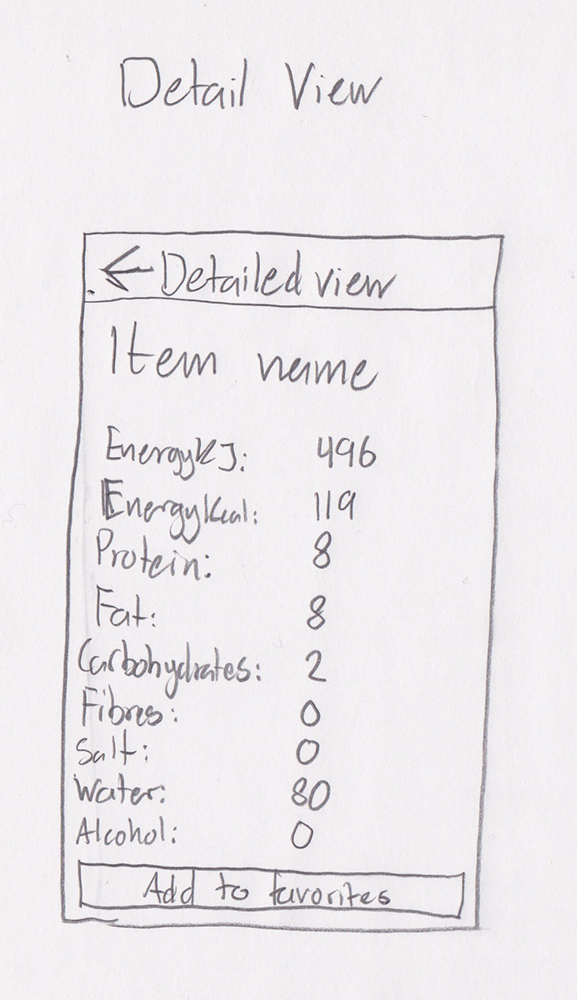 Detail View
← Detailed view
Item name
EnergyKJ: 496
EnergyKcal: 119
Protein: 8
Fat: 8
Carbohydrates: 2
Fibres: 0
Salt: 0
Water: 80
Alcohol: 0
Add to favorites